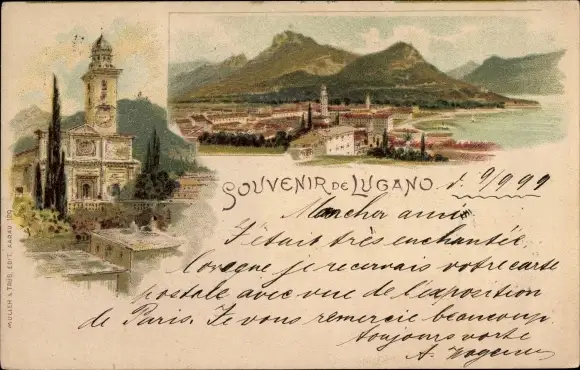 SOUVENIR DE LUGANO
d. 9/9 99
Mon cher ami
J'était très enchantée.
Lorsque je recervais votre carte
postale avec vue de l'exposition
de Paris. Je vous remercie beaucoup.
toujours votre
A.
MÜLLER & TRÜB, EDIT. AARAU